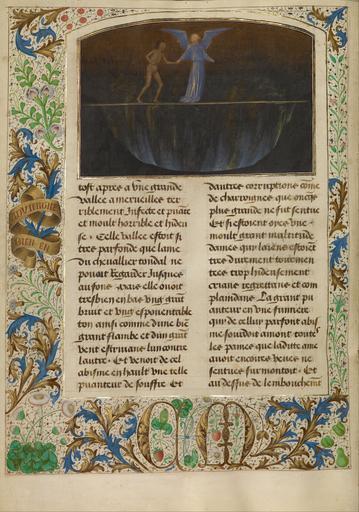 tost apres a vne grande
vallee a merueilles ter
riblement Infecte et puāte
et moult horrible et hideu
se. Celle vallee estoit si
tres parfonde que lame
du cheuallier tondal ne
pouoit regarder Jusques
au fons. mais elle ouoit
tresbien en bas vng grāt
bruit et vng espouentable
ton ainsi comme dune bien
grant flambe et dun grāt
vent estriuans lun contre
lautre. Et venoit de cel
abisme en hault vne telle
puanteur de souffre Et
dautres corruptions come
de charroignes que oncqs
plus grande ne fut sentue
Et si estoient oyes vne
moult grant multitude
dames qui laiens estoiēt
tres durement tourmen
tees trop hideusement
crians regrettans et com
plaindans. La grant pu
anteur en vne fumiere
qui de cellui parfont abis
me sourdoit amont toute
les paines que ladite ame
auoit encoires veues ne
sentues surmontoit. Et
au dessus de lembouchemt
BIEN EN
CM